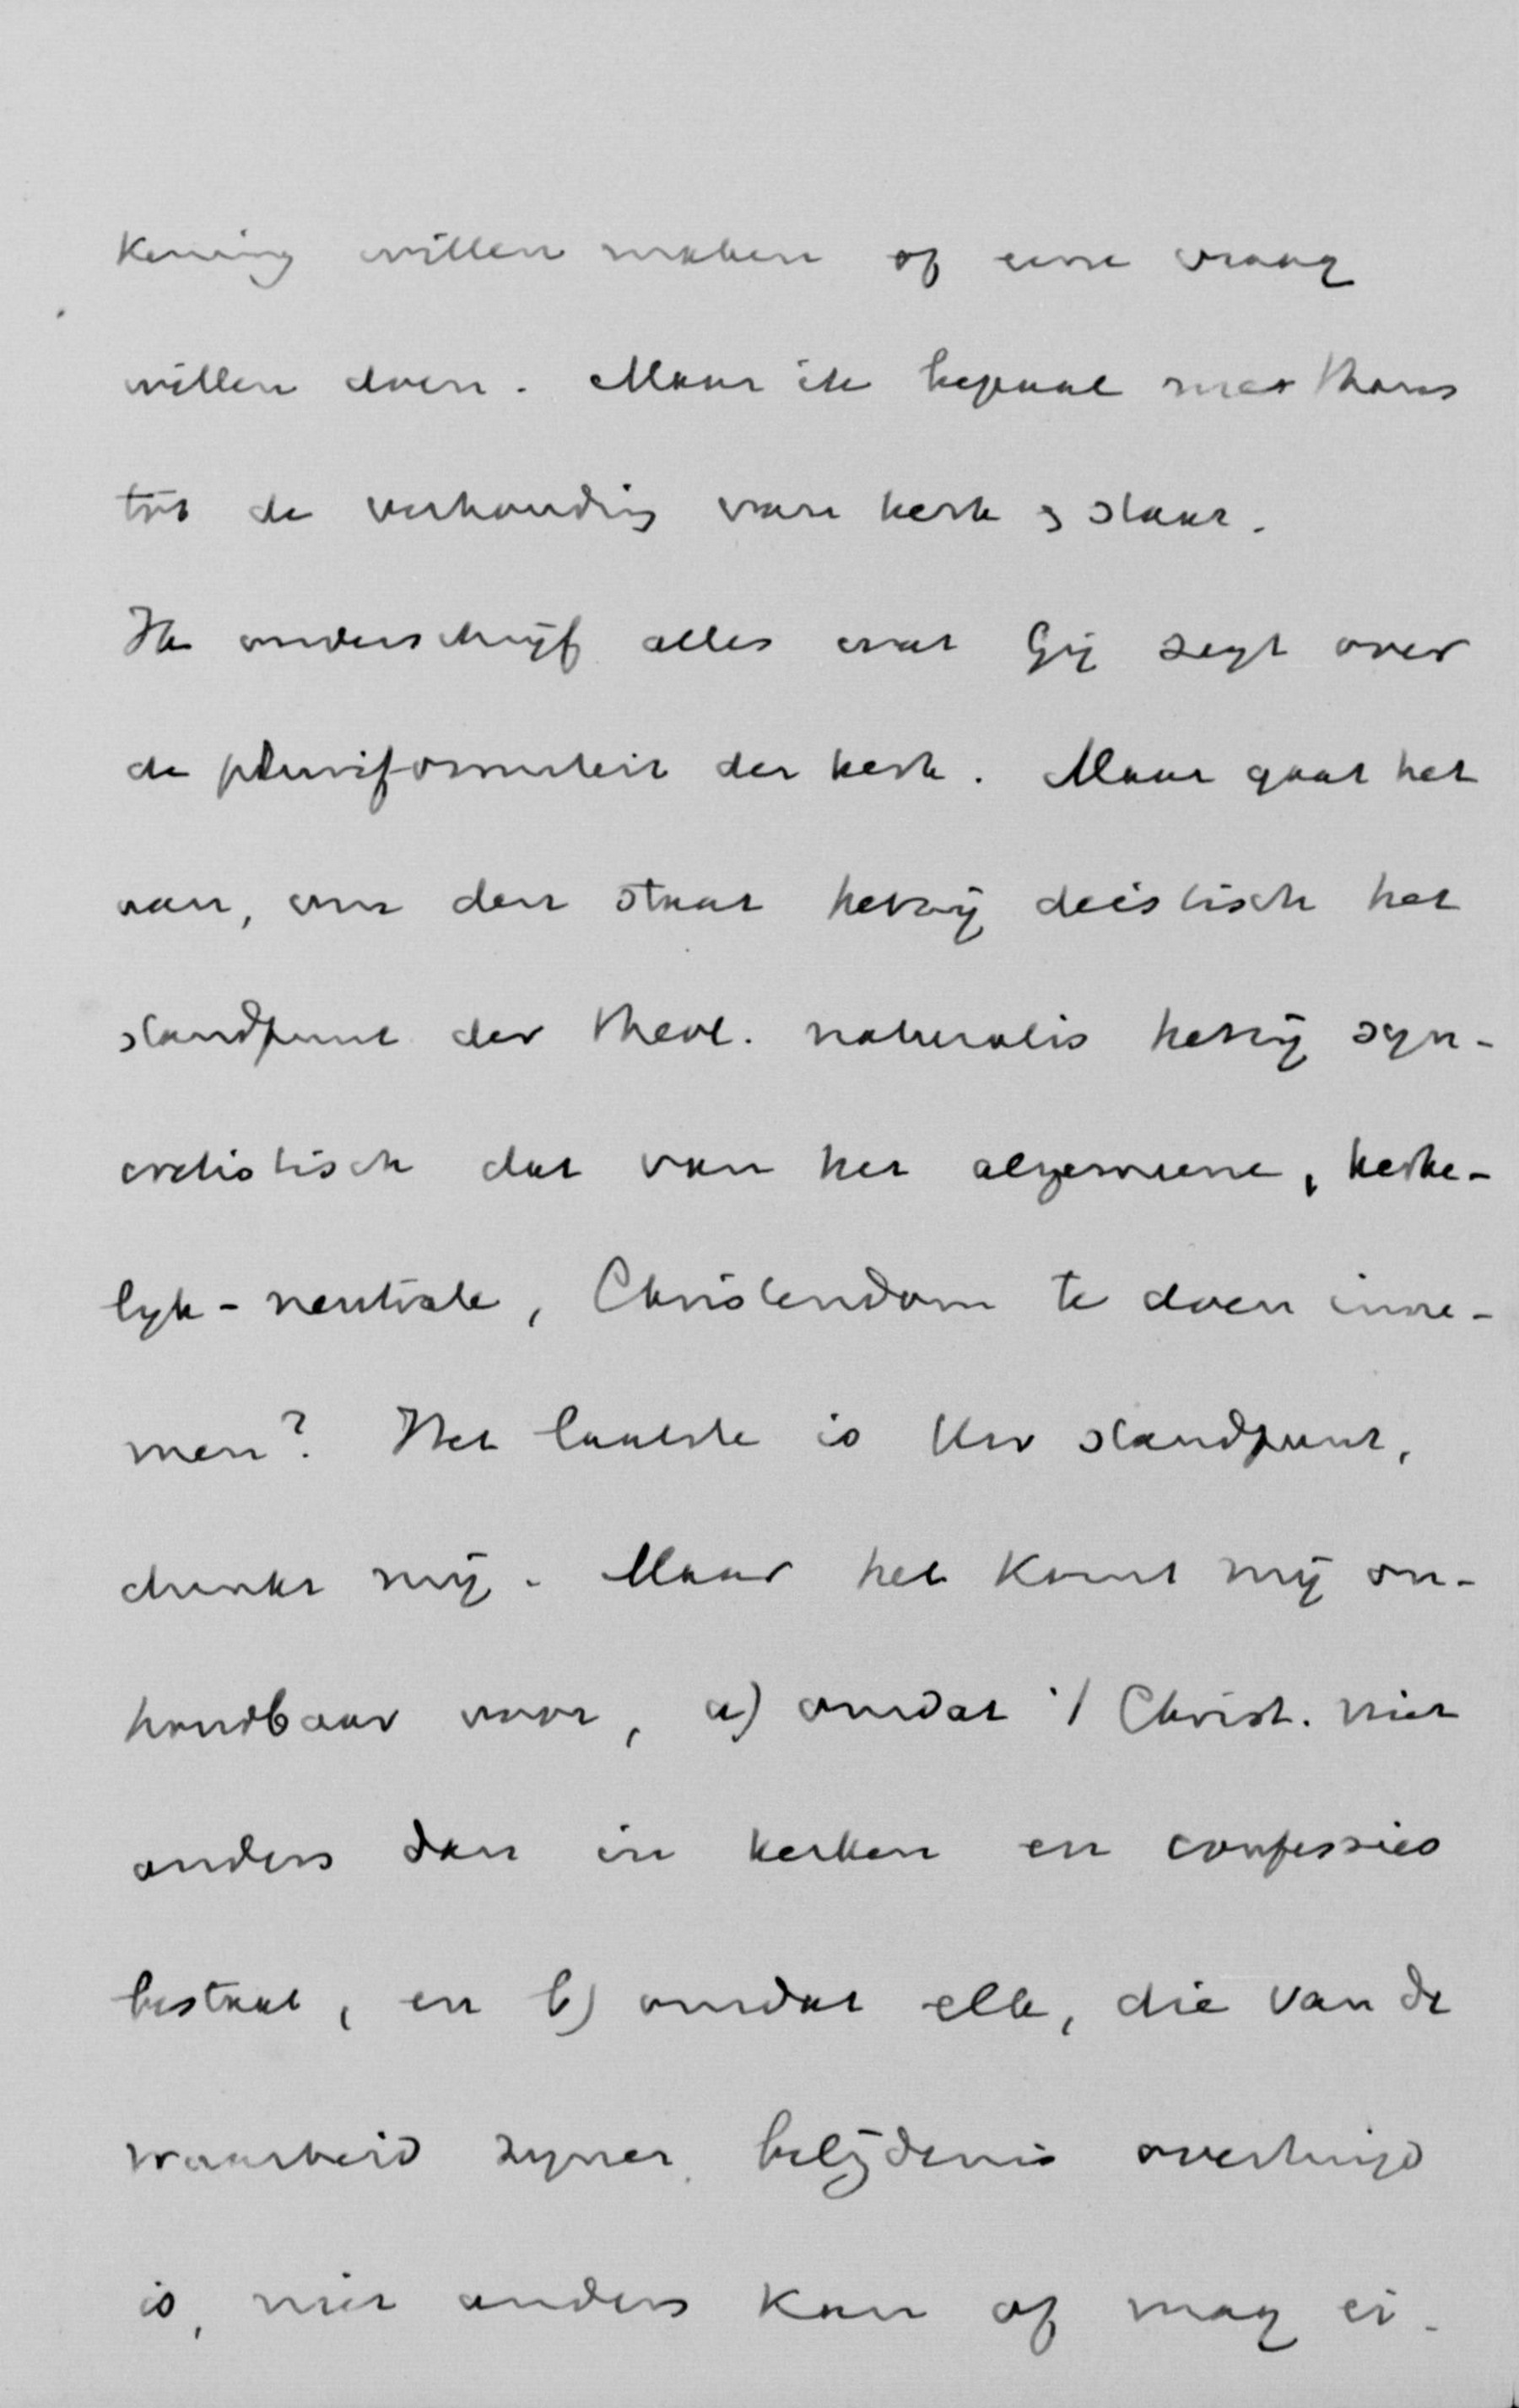 kening willen maken of eene vraag
willen doen. Maar ik bepaal me thans
tot de verhouding van kerk & staat.
Ik onderschrijf alles wat Gij zegt over
de pluriformiteit der kerk. Maar gaat het
aan, om den staat hetzij deistisch het
standpunt der theol. naturalis hetzij syn-
cretistisch dat van het algemeene, kerke-
lyk-neutrale, Christendom te doen inne-
men? Het laatste is Uw standpunt,
dunkt mij. Maar het komt mij on-
houdbaar voor, a) omdat 't Christ. niet
anders dan in kerken en confessies
bestaat, en b) omdat elk, die van de
waarheid zyner belijdenis overtuigd
is, niet anders kan of mag ei-